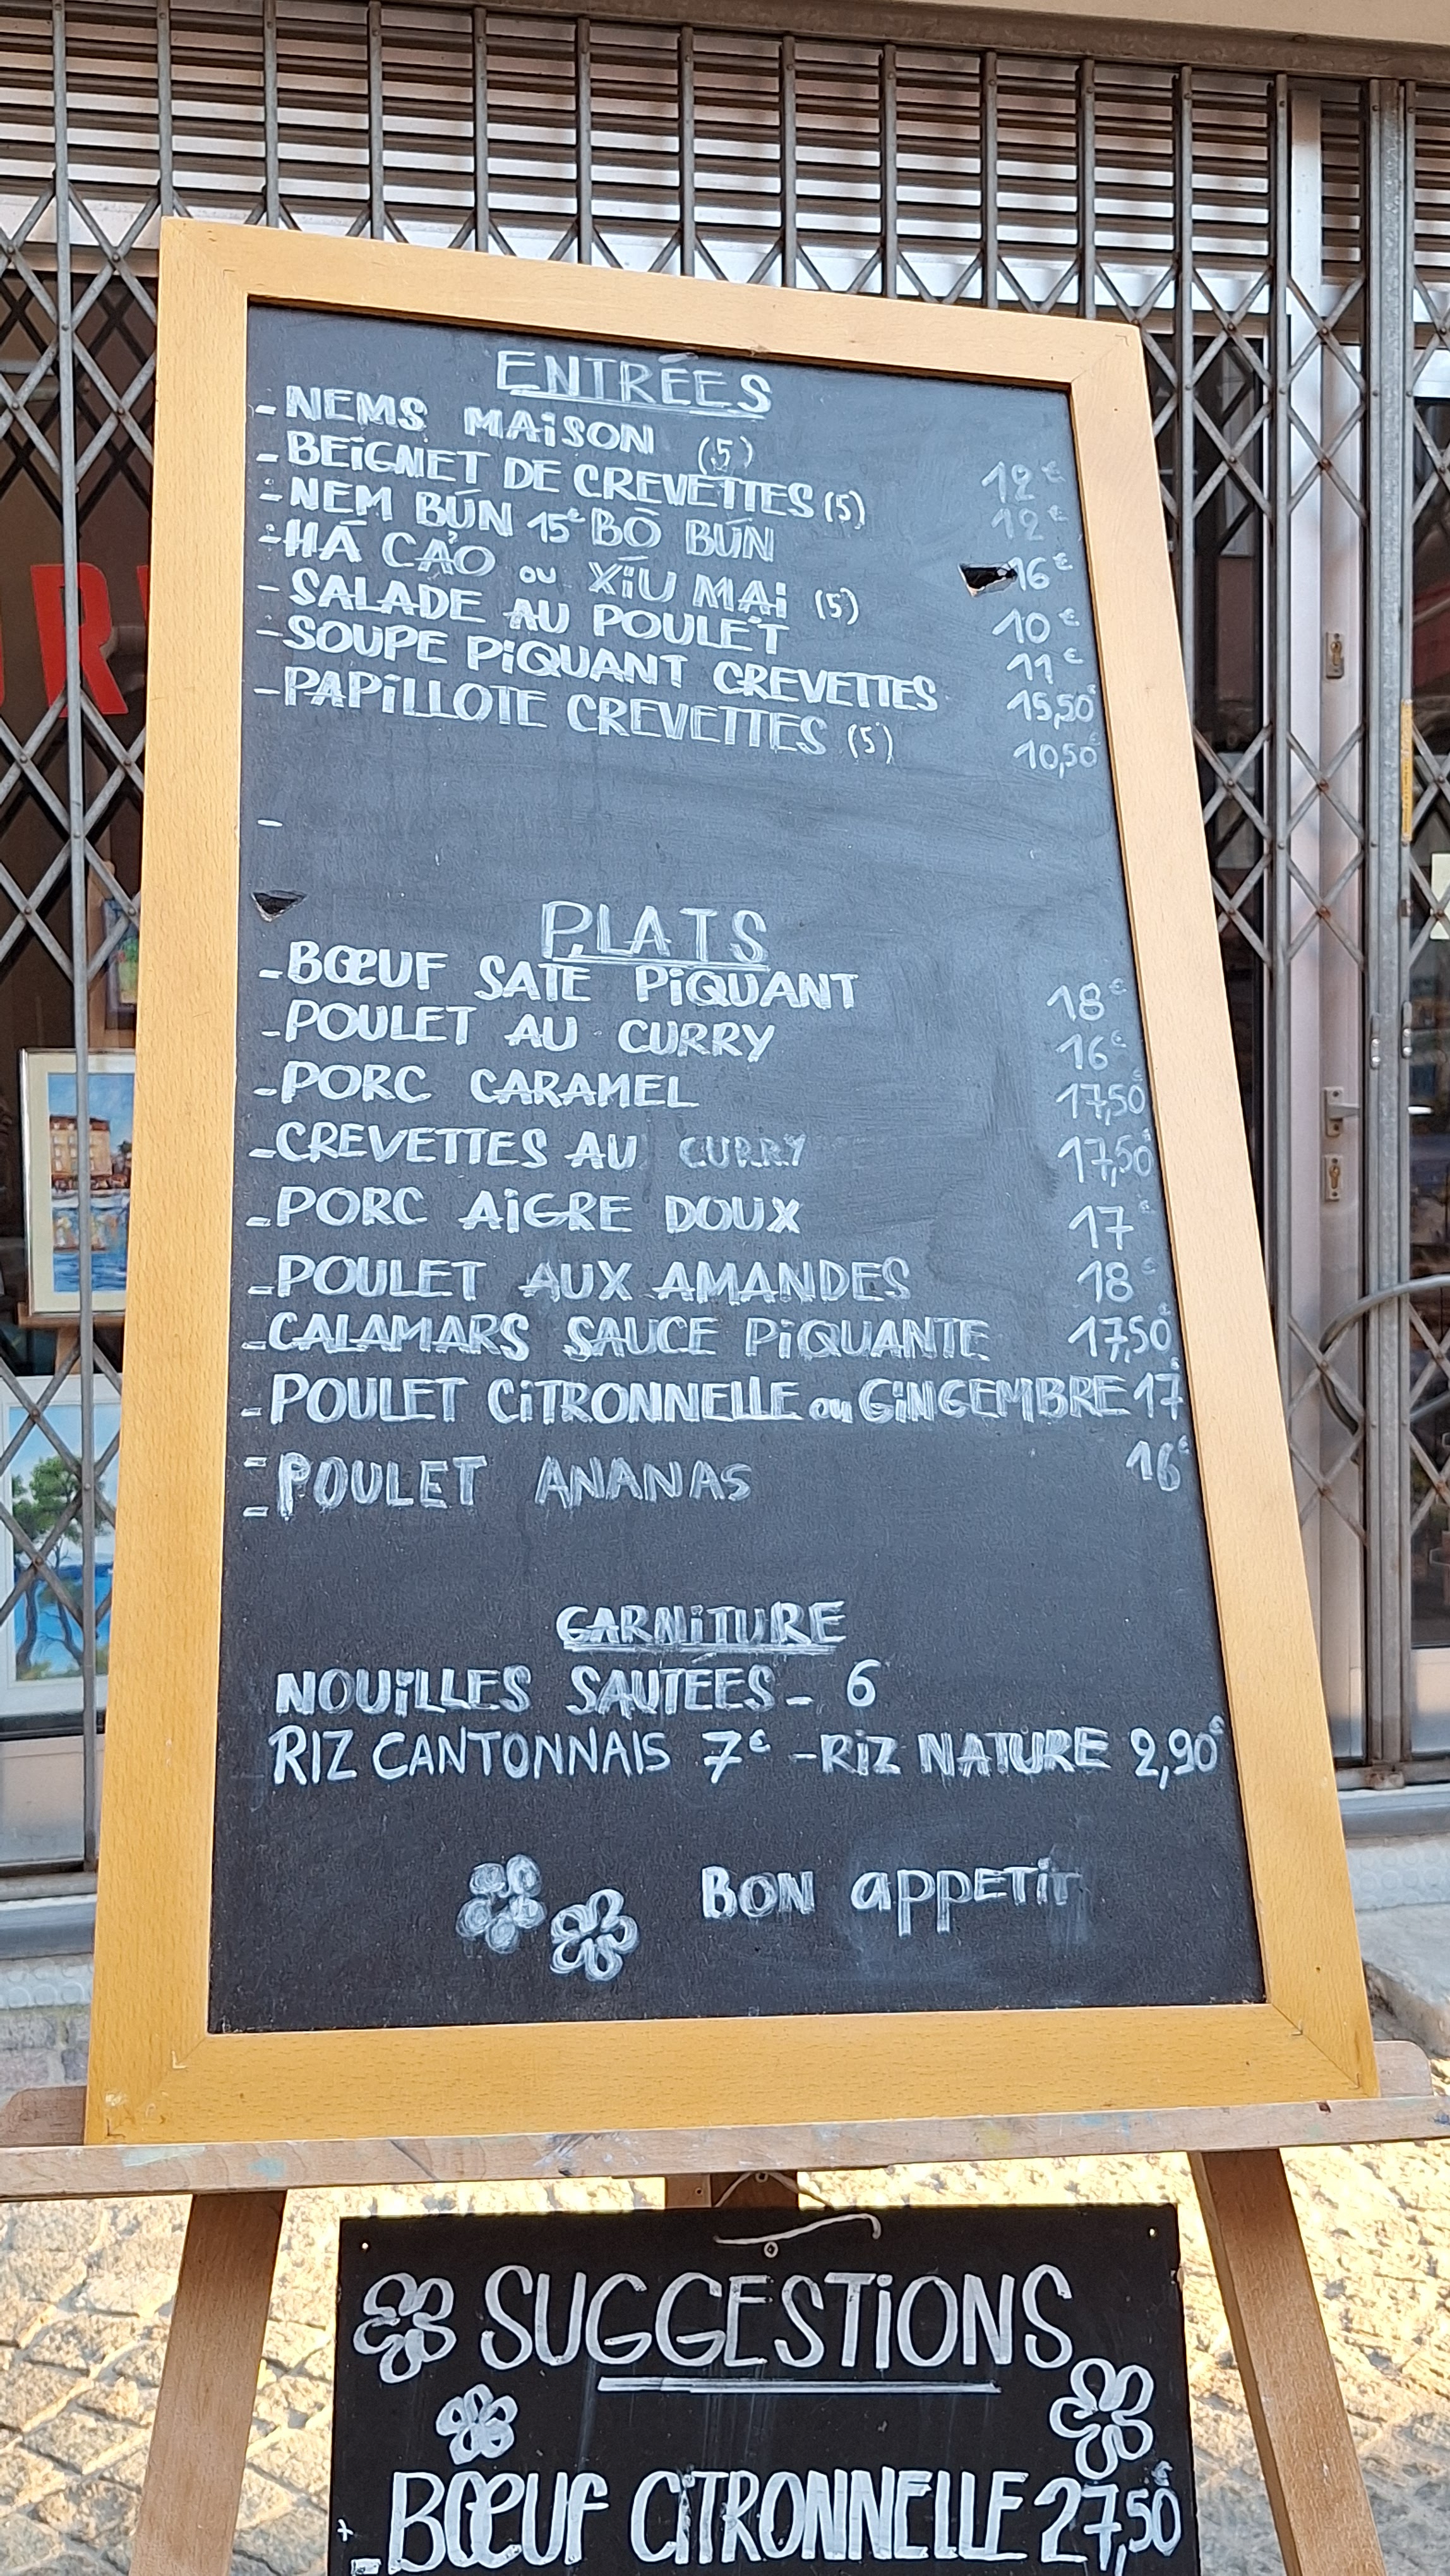 ENTRÉES
- NEMS MAiSON (5) 12€
- BEiGNET DE CREVETTES (5) 12€
- NEM BÚN 15€ BÒ BÚN 16€
- HÁ CẢO ou XÍU MAi (5) 10€
- SALADE AU POULET 11€
- SOUPE PiQUANT CREVETTES 15,50€
- PAPiLLOTE CREVETTES (5) 10,50€
-
PLATS
- BŒUF SATE PiQUANT 18€
- POULET AU CURRY 16€
- PORC CARAMEL 17,50€
- CREVETTES AU CURRY 17,50€
- PORC AiGRE DOUX 17€
- POULET AUX AMANDES 18€
- CALAMARS SAUCE PiQUANTE 17,50€
- POULET CiTRONNELLE ou GiNGEMBRE 17€
- POULET ANANAS 16€
-
GARNiTURE
NOUiLLES SAUTEES - 6
RIZ CANTONNAIS 7€ - RiZ NATURE 2,90€
BON appETiT
SUGGESTiONS
- BŒUF CiTRONNELLE 27,50€